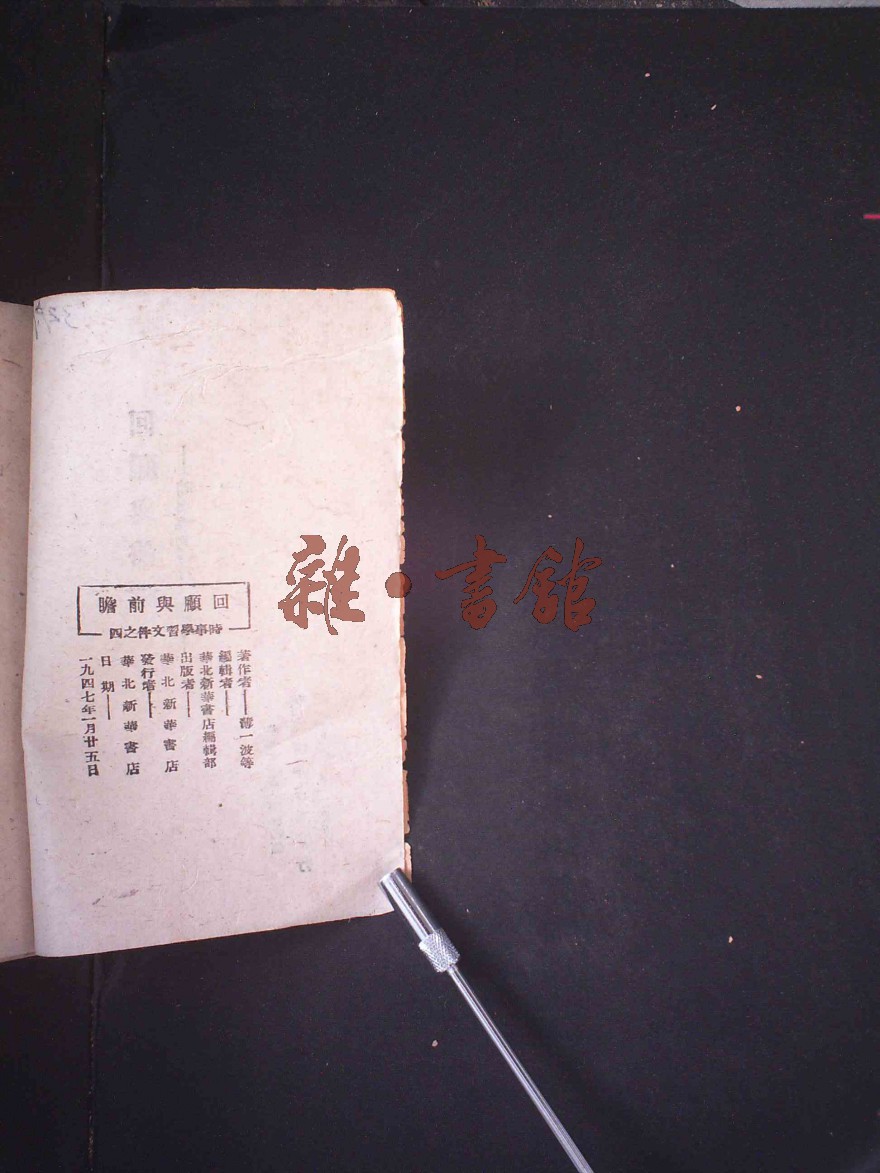 回顧與前瞻
時事學習文件之四
著作者——薄一波等
編輯者——
華北新華書店編輯部
出版者——
華北新華書店
發行者——
華北新華書店
日期——
一九四七年一月廿五日
雜·書館